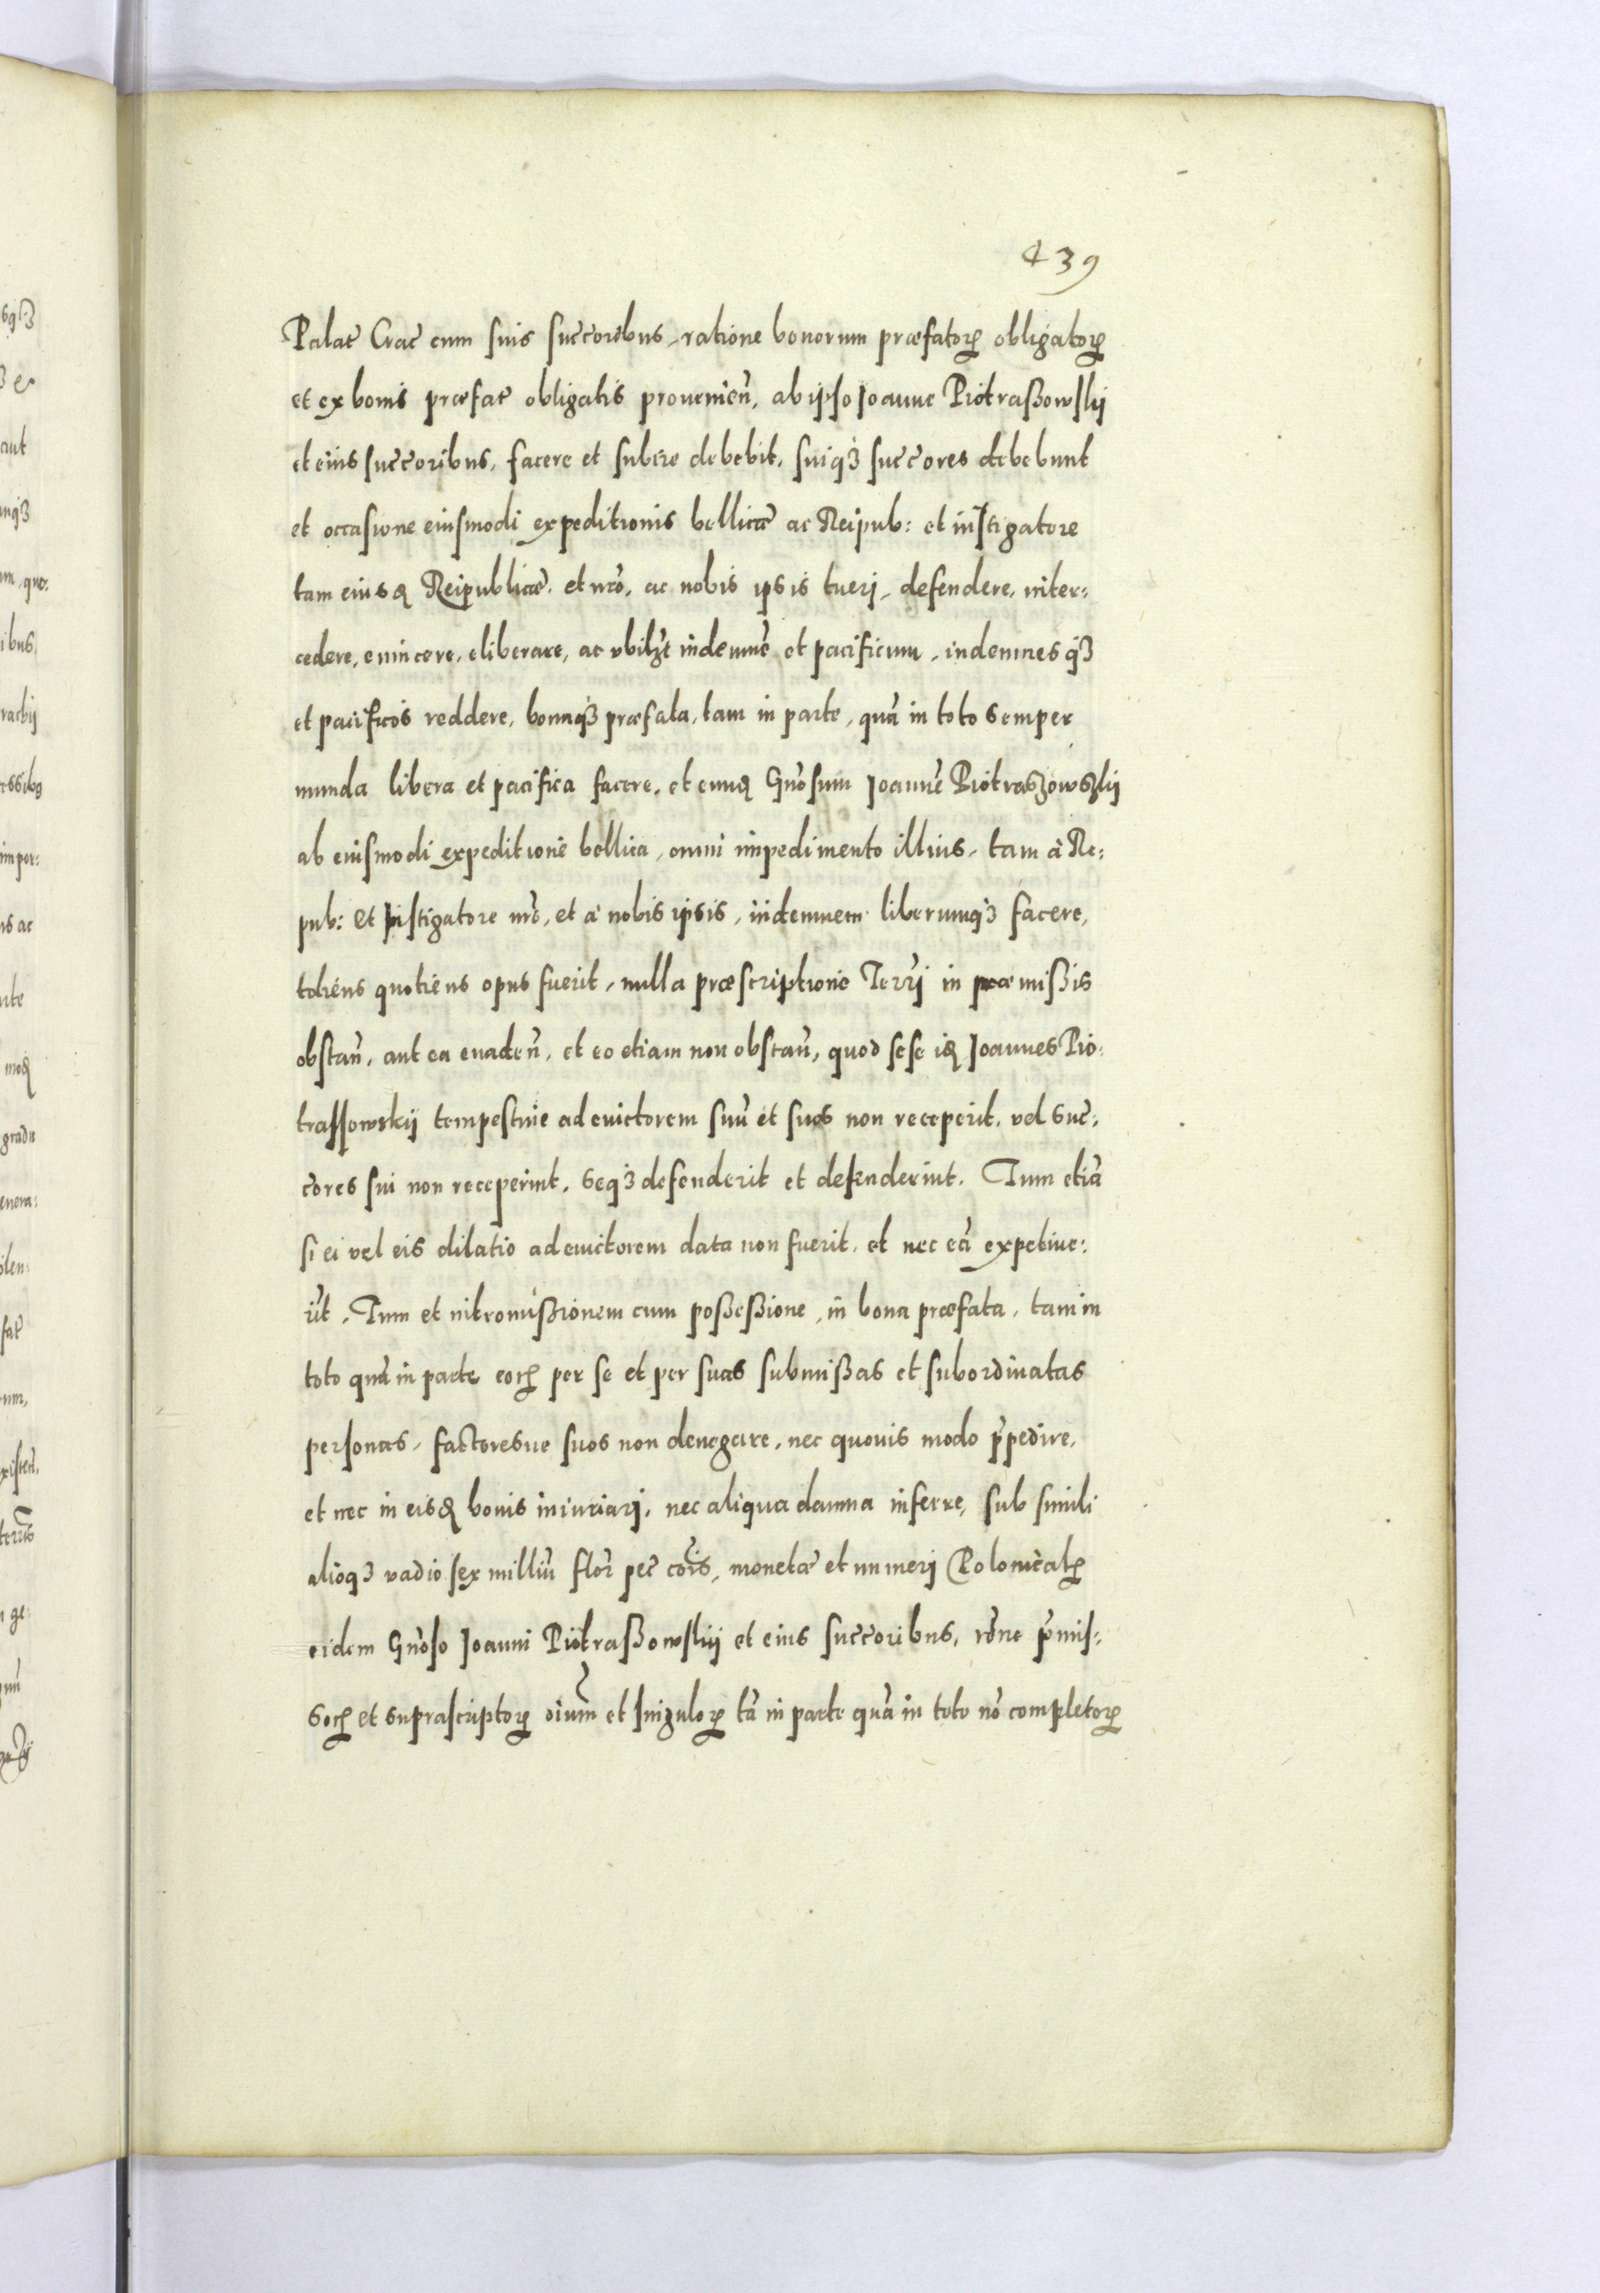 439
Palat̄ Crac̄ cum suis succ̄oribus, ratione bonorum præfatoꝝ obligatoꝝ
et ex bonis præfat̄ obligatis prouenien̄, ab ipso Joanne Piotraßowskij
et eius succ̄oribus, facere et subire debebit, suiqȝ succ̄ores debebunt
et occasione eiusmodi expeditionis bellicæ ac Reipub: et instigatore
tam eiusđ Reipublicæ, et nr̄o, ac nobis ipsis tuerj, defendere, inter-
cedere, euincere, eliberare, ac vbilꝫt indemnē et pacificum, indemnesqȝ
et pacificos reddere, bonaqȝ præfata, tam in parte, quā in toto semper
munda libera et pacifica facere, et eunđ Gn̄osum Joannē Piotraszowszkij
ab eiusmodi expeditione bellica, omni impedimento illius, tam à Re-
pub: et Jnstigatore nr̄o, et à nobis ipsis, indemnem liberumqȝ facere,
totiens quotiens opus fuerit, nulla præscriptione Terr̄j in præmißis
obstan̄, aut ea euaden̄, et eo etiam non obstan̄, quod sese iđ Joannes Pio-
trassowskij tempestiue ad euictorem suū et suos non receperit, vel suc̄-
c̄ores sui non receperint, seqȝ defenderit et defenderint. Tum etiā
si ei vel eis dilatio ad euictorem data non fuerit, et nec eā expetiue-
rīt. Tum et intromißionem cum poßeßione, in bona præfata, tam in
toto quā in parte eoꝝ per se et per suas submißas et subordinatas
personas, factoresue suos non denegare, nec quouis modo p̄pedire,
et nec in eisđ bonis iniuriarj, nec aliqua damna inferre, sub simili
alioqȝ vadio sex milliū flor̄ pec̄ cōis, monetæ et numerj Polonicaľꝝ
eidem Gn̄oso Joanni Piotraßowskij et eius succ̄oribus, rōne p̄mis-
soꝝ et suprascriptoꝝ oīum et singuloꝝ tā in parte quā in toto nō completoꝝ